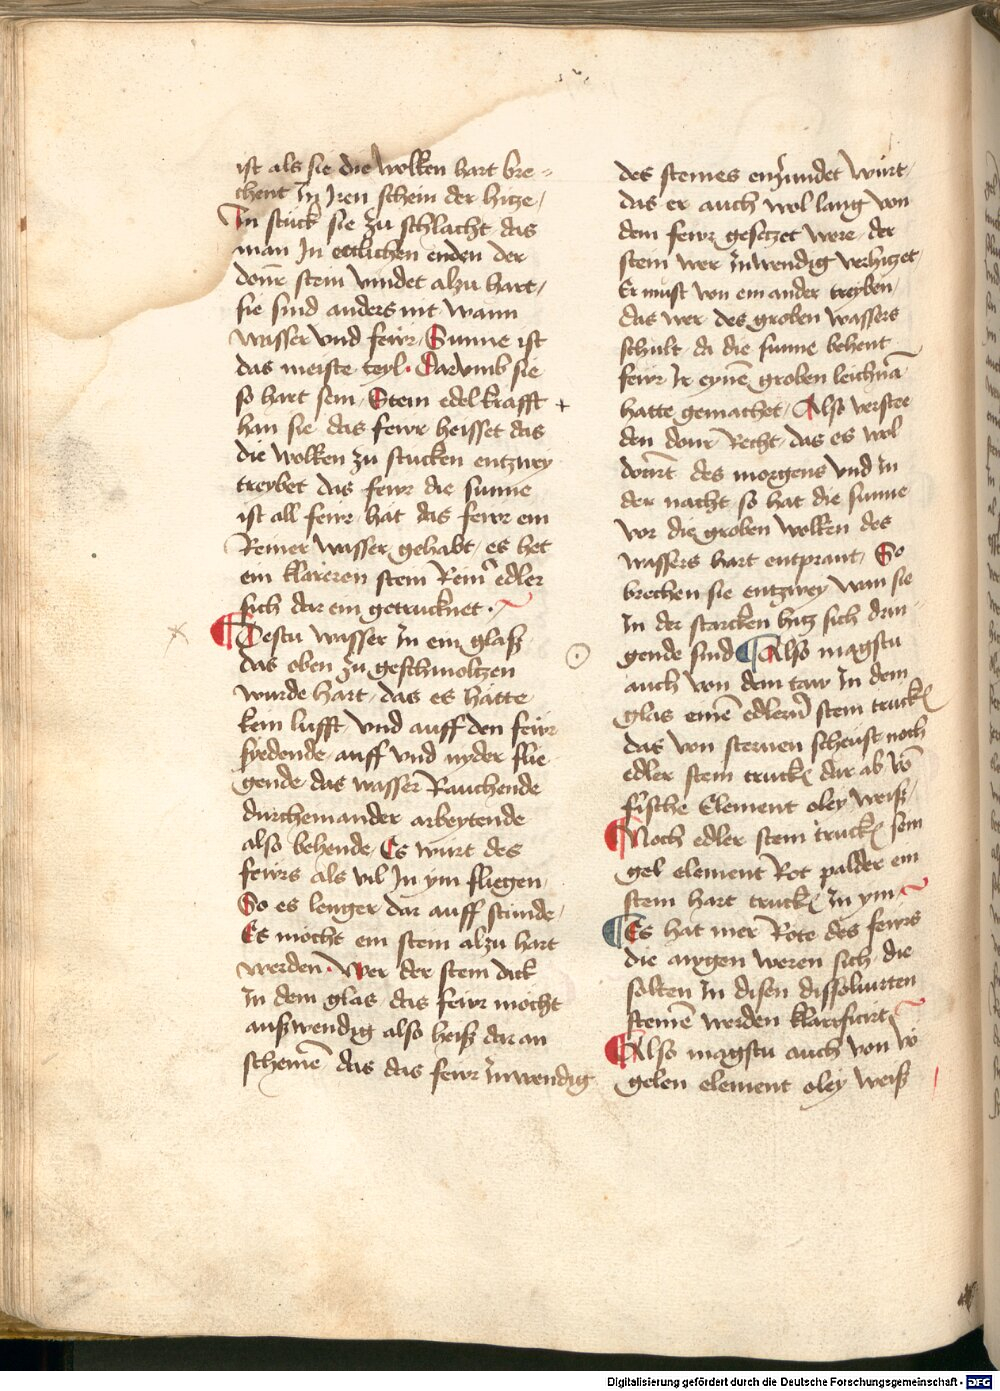 ist als sie die wolken hart bre-
chent In Iren schein der hicze/
In stuck sie zu schlacht das
man In ettlichen enden der
donr̄ stein vindet alzu hart/
sie sind anders nit wann
wasser vnd fewr/ Sunne ist
das meiste teyl. Darvmb sie
so hart sein/ Stein edel krafft +
han sie das fewr heisset das
die wolken zu stucken entzwey
treybet das fewr die sunne
ist all fewr/ hat das fewr ein
Reiner wasser gehabt/ es het
ein klareren stein Reinr̄ edler
sich dar ein getrucknet.
Testu wasser In ein glaß
das oben zu geschmoltzen
wurde hart/ das es hatte
kein lufft vnd auff den fewr
sydende auff vnd nyder flie
gende das wasser Rauchende
durcheinander arbeytende
also behende/ Es wurt des
fewrs als vil In ym fliegen
So es lenger dar auff stunde/
Es mocht ein stein alzu hart
werden. Wer der stein dick
In dem glas das fewr mocht
außwendig also heiß dar an
scheinē das das fewr Inwendig
des steines enzundet wurt/
das er auch wol lang von
dem fewr gesetzet were der
stein wer Inwendig verhiczet
Er must von ein ander treyben/
das wer des groben wassers
schult da die sunne behent
fewr Ir eynē groben leichnā
hatte gemachet/ Also verstee
den donr Recht das es wol
donrt des morgens vnd In
der nacht so hat die sunne
vor die groben wolken des
wassers hart entprant/ So
brechen sie entzwey wan sie
In der starcken hitz sich drin
gende sind Also magstu
auch von dem taw In dem
glas einē edlern stein truckē
das von sternen scheust noch
edler stein truckē dar ab vō
fische Element oley weiß/
Noch edler stein truckē sein
gel element Rot palder ein
stein hart truckē In ym
Es hat mer Rote des fewrs
die augen weren sich die
solten In disen dissoluirten
steinē werden klarificirt
Also magstu auch von vō
gelen element oley weiß
Digitalisierung gefördert durch die Deutsche Forschungsgemeinschaft - DFG